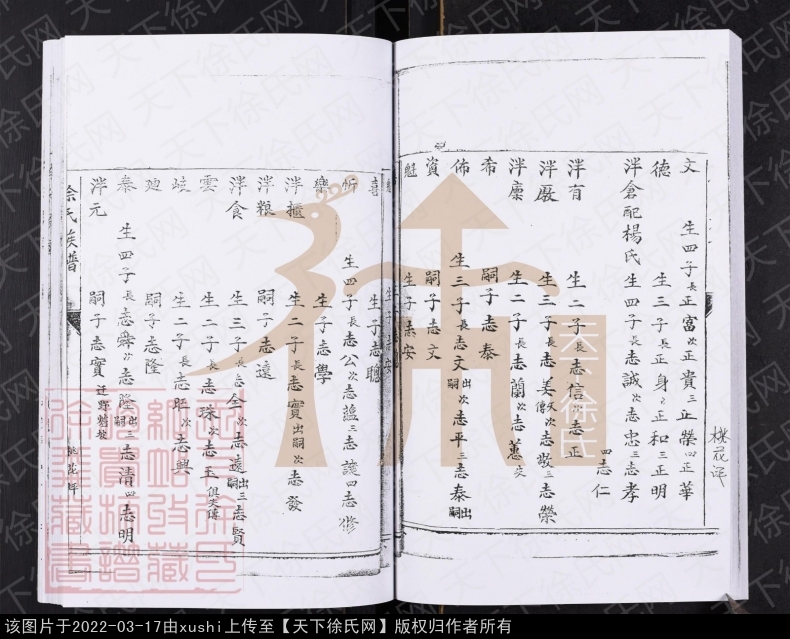 桃花洋
文 生四子長正富次正貴三正榮四正華
德 生三子長正身次正和三正明
泮倉配楊氏生四子長志誠次志忠三志孝
四志仁
泮有 生二子長志信次志正
泮廒 生三子長志姜失傳次志敬三志榮
泮廩 生二子長志蘭次志蕙
希 嗣子志泰
佈 生三子長志文出嗣次志平三志泰出嗣
資 嗣子志文
魁 生子志安
喜 生子志聰
忻 生四子長志公次志蘊三志謨四志修
樂 生子志學
泮櫃 生二子長志實出嗣次志發
泮粮 嗣子志遠
泮食 生三子長志全次志遠出嗣三志賢
雲 生二子長志珠次志玉俱失傳
岐 生二子長志旺次志興
廵 嗣子志隆
泰 生四子長志舜次志隆出嗣三志清四志明
泮元 嗣子志實
徐氏族譜
桃花洋
天下徐氏
该图片于2022-03-17由xushi上传至【天下徐氏网】版权归作者所有